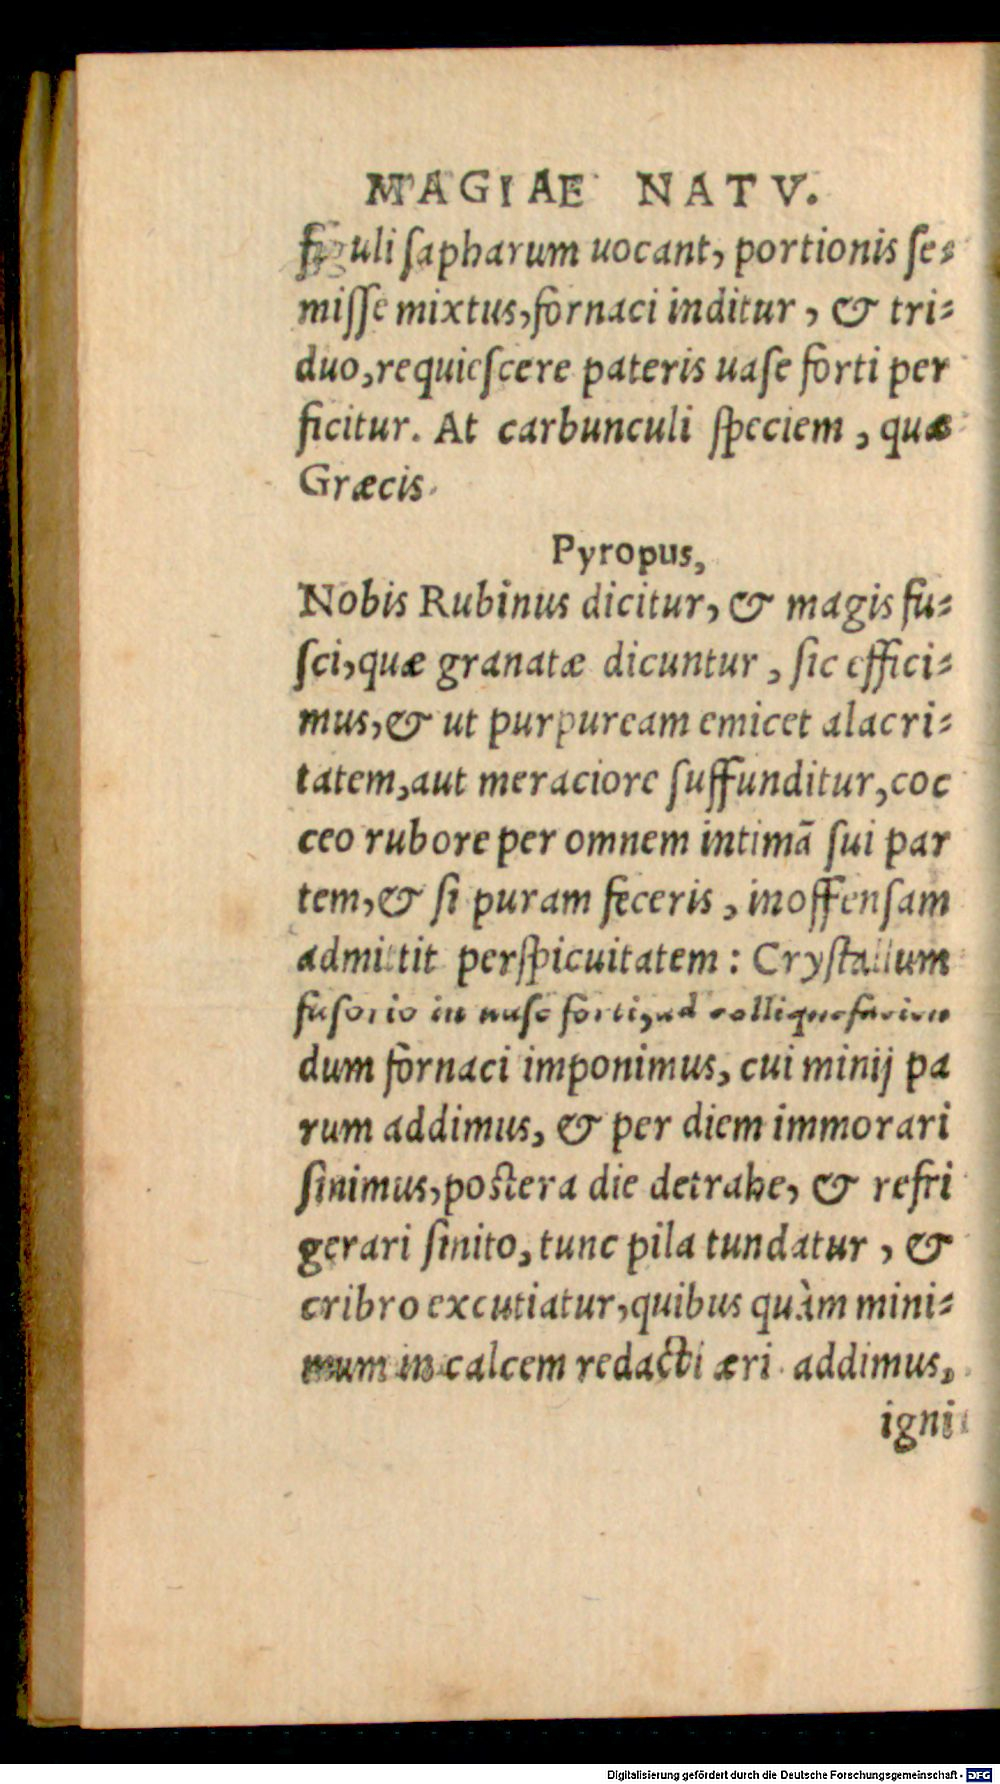 MAGIAE NATV.
figuli sapharum uocant, portionis se-
misse mixtus, fornaci inditur, & tri-
duo, requiescere pateris uase forti per
ficitur. At carbunculi speciem, quæ
Græcis.
Pyropus,
Nobis Rubinus dicitur, & magis fu-
sci, quæ granatæ dicuntur, sic effici-
mus, & ut purpuream emicet alacri-
tatem, aut meraciore suffunditur, coc
ceo rubore per omnem intimā sui par
tem, & si puram feceris, inoffensam
admittit perspicuitatem: Crystallum
fusorio in uase forti, ad colliquefacien
dum fornaci imponimus, cui minij pa
rum addimus, & per diem immorari
sinimus, postera die detrahe, & refri
gerari sinito, tunc pila tundatur, &
cribro excutiatur, quibus quàm mini-
mum in calcem redacti æri addimus,
igni
Digitalisierung gefördert durch die Deutsche Forschungsgemeinschaft - DFG